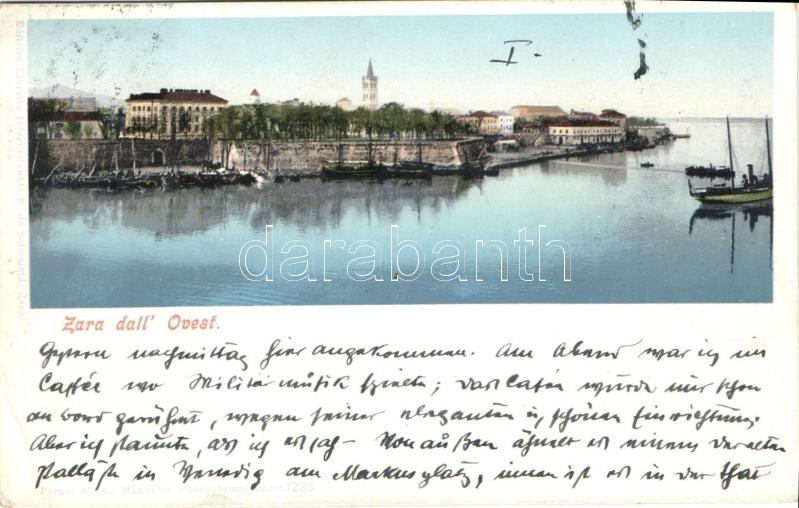 I.
darabanth
Edition Libreria Internazionale E. de Schönfeld, Zara.
Zara dall' Ovest.
Gestern nachmittag hier angekommen. Am Abend war ich im
Caffée wo Militärmusik spielte; das Cafée wurde mir schon
an bord gerühmt, wegen seiner eleganten u. schönen Einrichtung.
Aber ich staunte, als ich es sah – Von außen ähnelt es einem der alten
Palläste in Venedig am Markusplatz, innen ist es in der That
München 1236